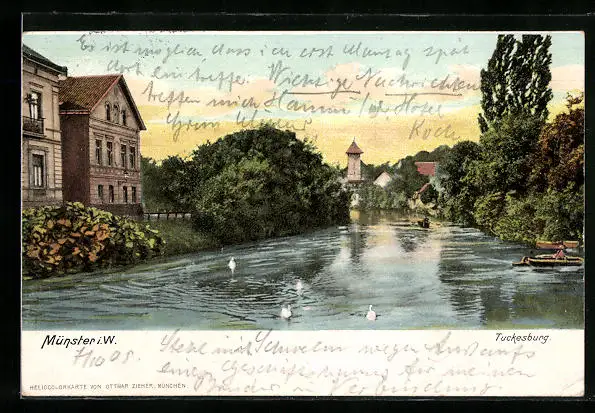 Es ist möglich dass ich erst Montag spät
dort eintreffe. Wichtige Nachrichten
treffen mich Hamm i/W Hotel
Koch
Münster i. W.
Tuckesburg.
7/10 05. Stehe mit Schwelm wegen Ankaufs
eines Geschäftshauses für meinen
Bruder in Verbindung
HELIOCOLORKARTE VON OTTMAR ZIEHER, MÜNCHEN